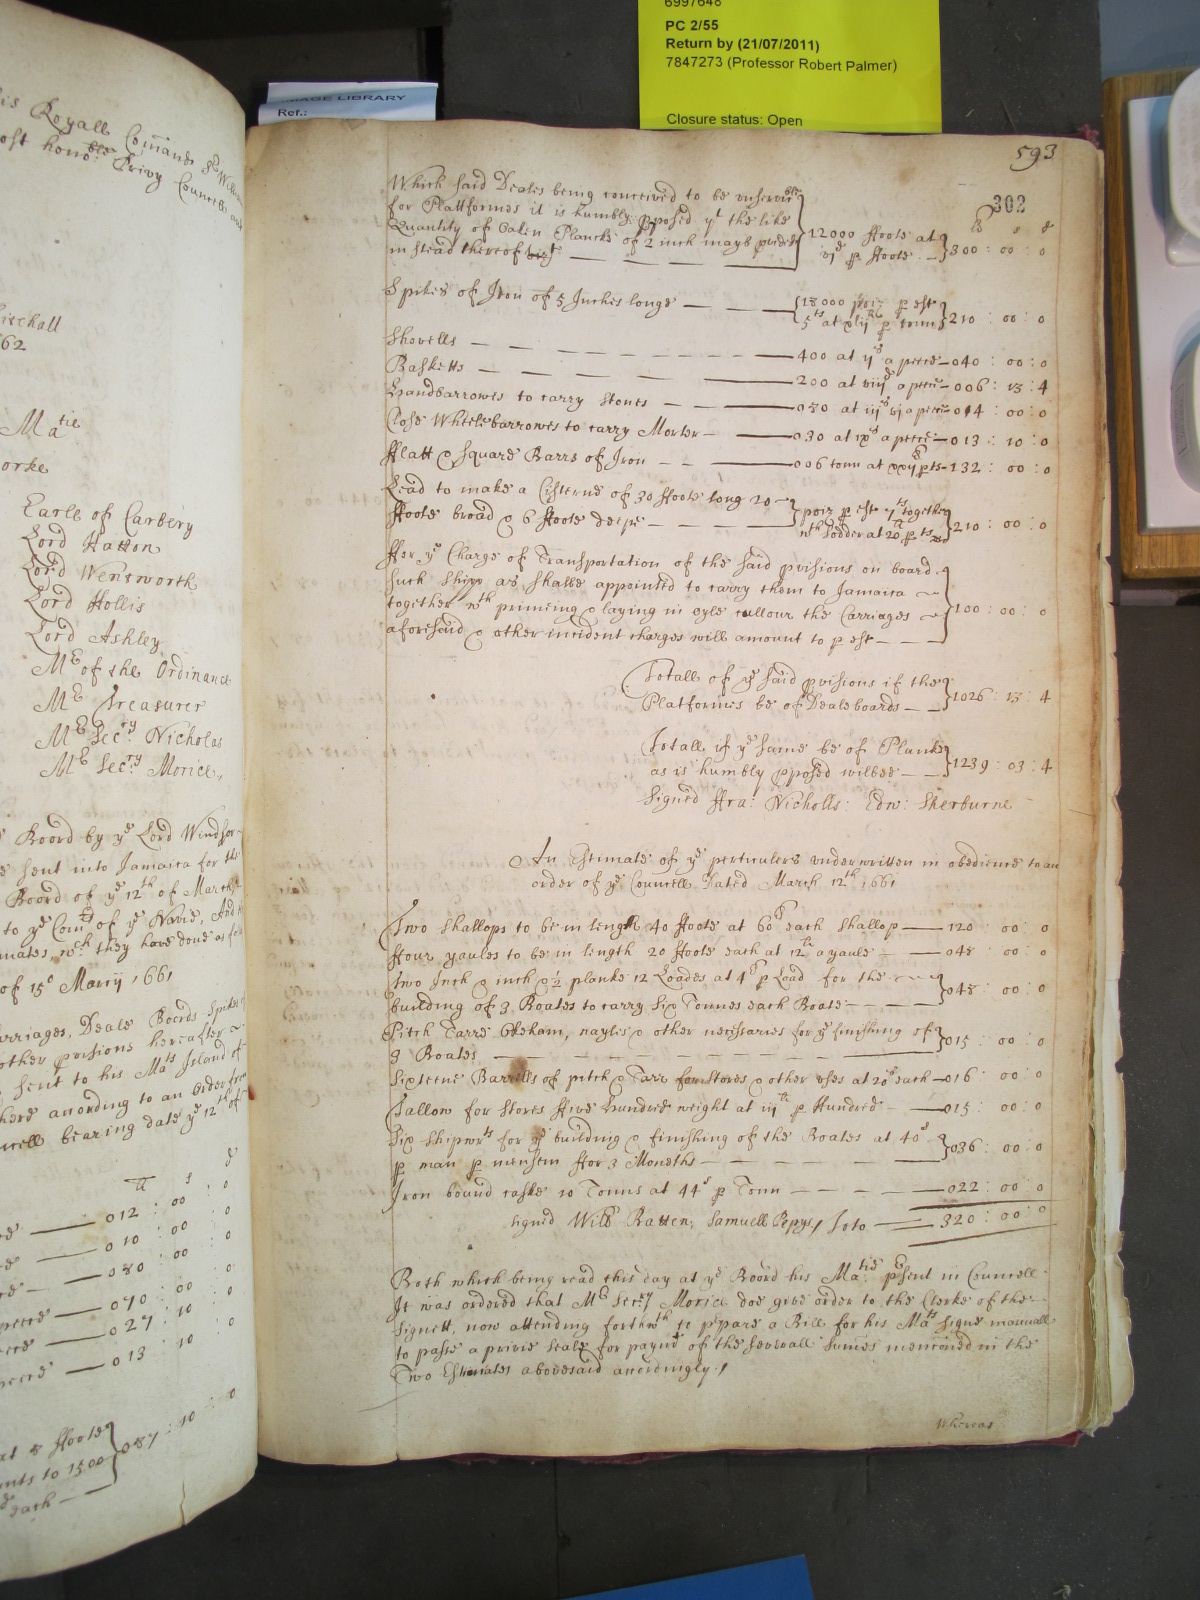 6997648
PC 2/55
Return by (21/07/2011)
7847273 (Professor Robert Palmer)
Closure status: Open
IMAGE LIBRARY
Ref.:
is Royall Comands Sr Willia
ost honoble Privy Councell and
62
Matie
orke
Earle of Carbery
Lord Hatton
Lord Wentworth
Lord Hollis
Lord Ashley
Mr of the Ordinance
Mr Treasurer
Mr Secry Nicholas
Mr Secry Morice,
Boord by ye Lord Windsor
sent into Jamaica for the
Boord of ye 12th of March
to ye Comrs of ye Navie, And
mates, wch they have done as
of 15o Marcij 1661
arriages, Deale Boords Spikes
other pvisions hereafter
sent to his Mats Island of
here according to an Order from
ncell bearing date ye 12th of
li s d
012 : 00 : 0
010 : 00 : 0
080 : 00 : 0
070 : 00 : 0
027 : 10 : 0
013 : 10 : 0
at 8 ffoote
nts to 1500 } 087 : 10 : 0
each
593
302
Which said Deales being conceived to be
for Platformes it is humbly pposed yt the like
Quantity of Oaken Plancks of 2 inch maye pvided
in stead thereof } 12000 ffoote at vjd p ffoote } 300 : 00 : 0
Spikes of Iron of 5 Inches longe { 18000 poiz p est 5ts at p tonn } 210 : 00 : 0
Shovells 400 at ijs a peece 040 : 00 : 0
Basketts 200 at viijd a peece 006 : 13 : 4
Handbarrowes to carry stones 080 at iijs vjd a peece 014 : 00 : 0
Close Wheelebarrowes to carry Morter 030 at ixs a peece 013 : 10 : 0
fflatt & Square Barrs of Iron 006 tonn at xxijli pts 132 : 00 : 0
Lead to make a Cisterne of 30 ffoote long 20
ffoote broad & 6 ffoote deepe } poiz p est 7ts together wth sodder at p } 210 : 00 : 0
ffor ye Charge of Transportation of the said pvisions on board
such shipp as shalbe appointed to carry them to Jamaica
together wth primeing & laying in oyle cullour the Carriages
aforesaid & other incident charges will amount to p est } 100 : 00 : 0
Totall of ye said pvisions if the
Platformes be of Dealeboards } 1026 : 13 : 4
Totall if ye same be of Planke
as is humbly pposed wilbee } 1239 : 03 : 4
Signed ffra: Nicholls: Edw: Sherburne
An Estimate of ye perticulers underwritten in obedience to an
order of ye Councell Dated March 12th 1661
Two shallops to be in length 40 ffoote at 60li each shallop 120 : 00 : 0
ffour yaules to be in length 20 ffoote each at 12li a yaule 048 : 00 : 0
Two Inch & inch & ½ planke 12 Loades at 4li p Load for the
building of 3 Boates to carry Six Tonnes each Boate } 048 : 00 : 0
Pitch Tarre Okeham, nayles & other necessaries for ye finishing of
9 Boates } 015 : 00 : 0
Sixteene Barrills of pitch & Tarr for Stores & other uses at 20s each 016 : 00 : 0
Tallow for Stores ffive hundred weight at iijli p Hundred 015 : 00 : 0
Six shipwrts for ye building & finishing of the Boates at 40s
p man p mensem ffor 3 Moneths } 036 : 00 : 0
Iron bound caske 10 Tonns at 44s p Tonn 022 : 00 : 0
signed Will Batten, Samuell Pepys, Toto 320 : 00 : 0
Both which being read this day at ye Boord his Matie psent in Councell
It was ordered that Mr Secry Morice doe give order to the Clerke of the
Signett, now attending forthwth to ppare a Bill for his Mats signe manuall
to passe a privie Seale for paymt of the severall sumes mencioned in the
Two Estimates abovesaid accordingly.
Whereas